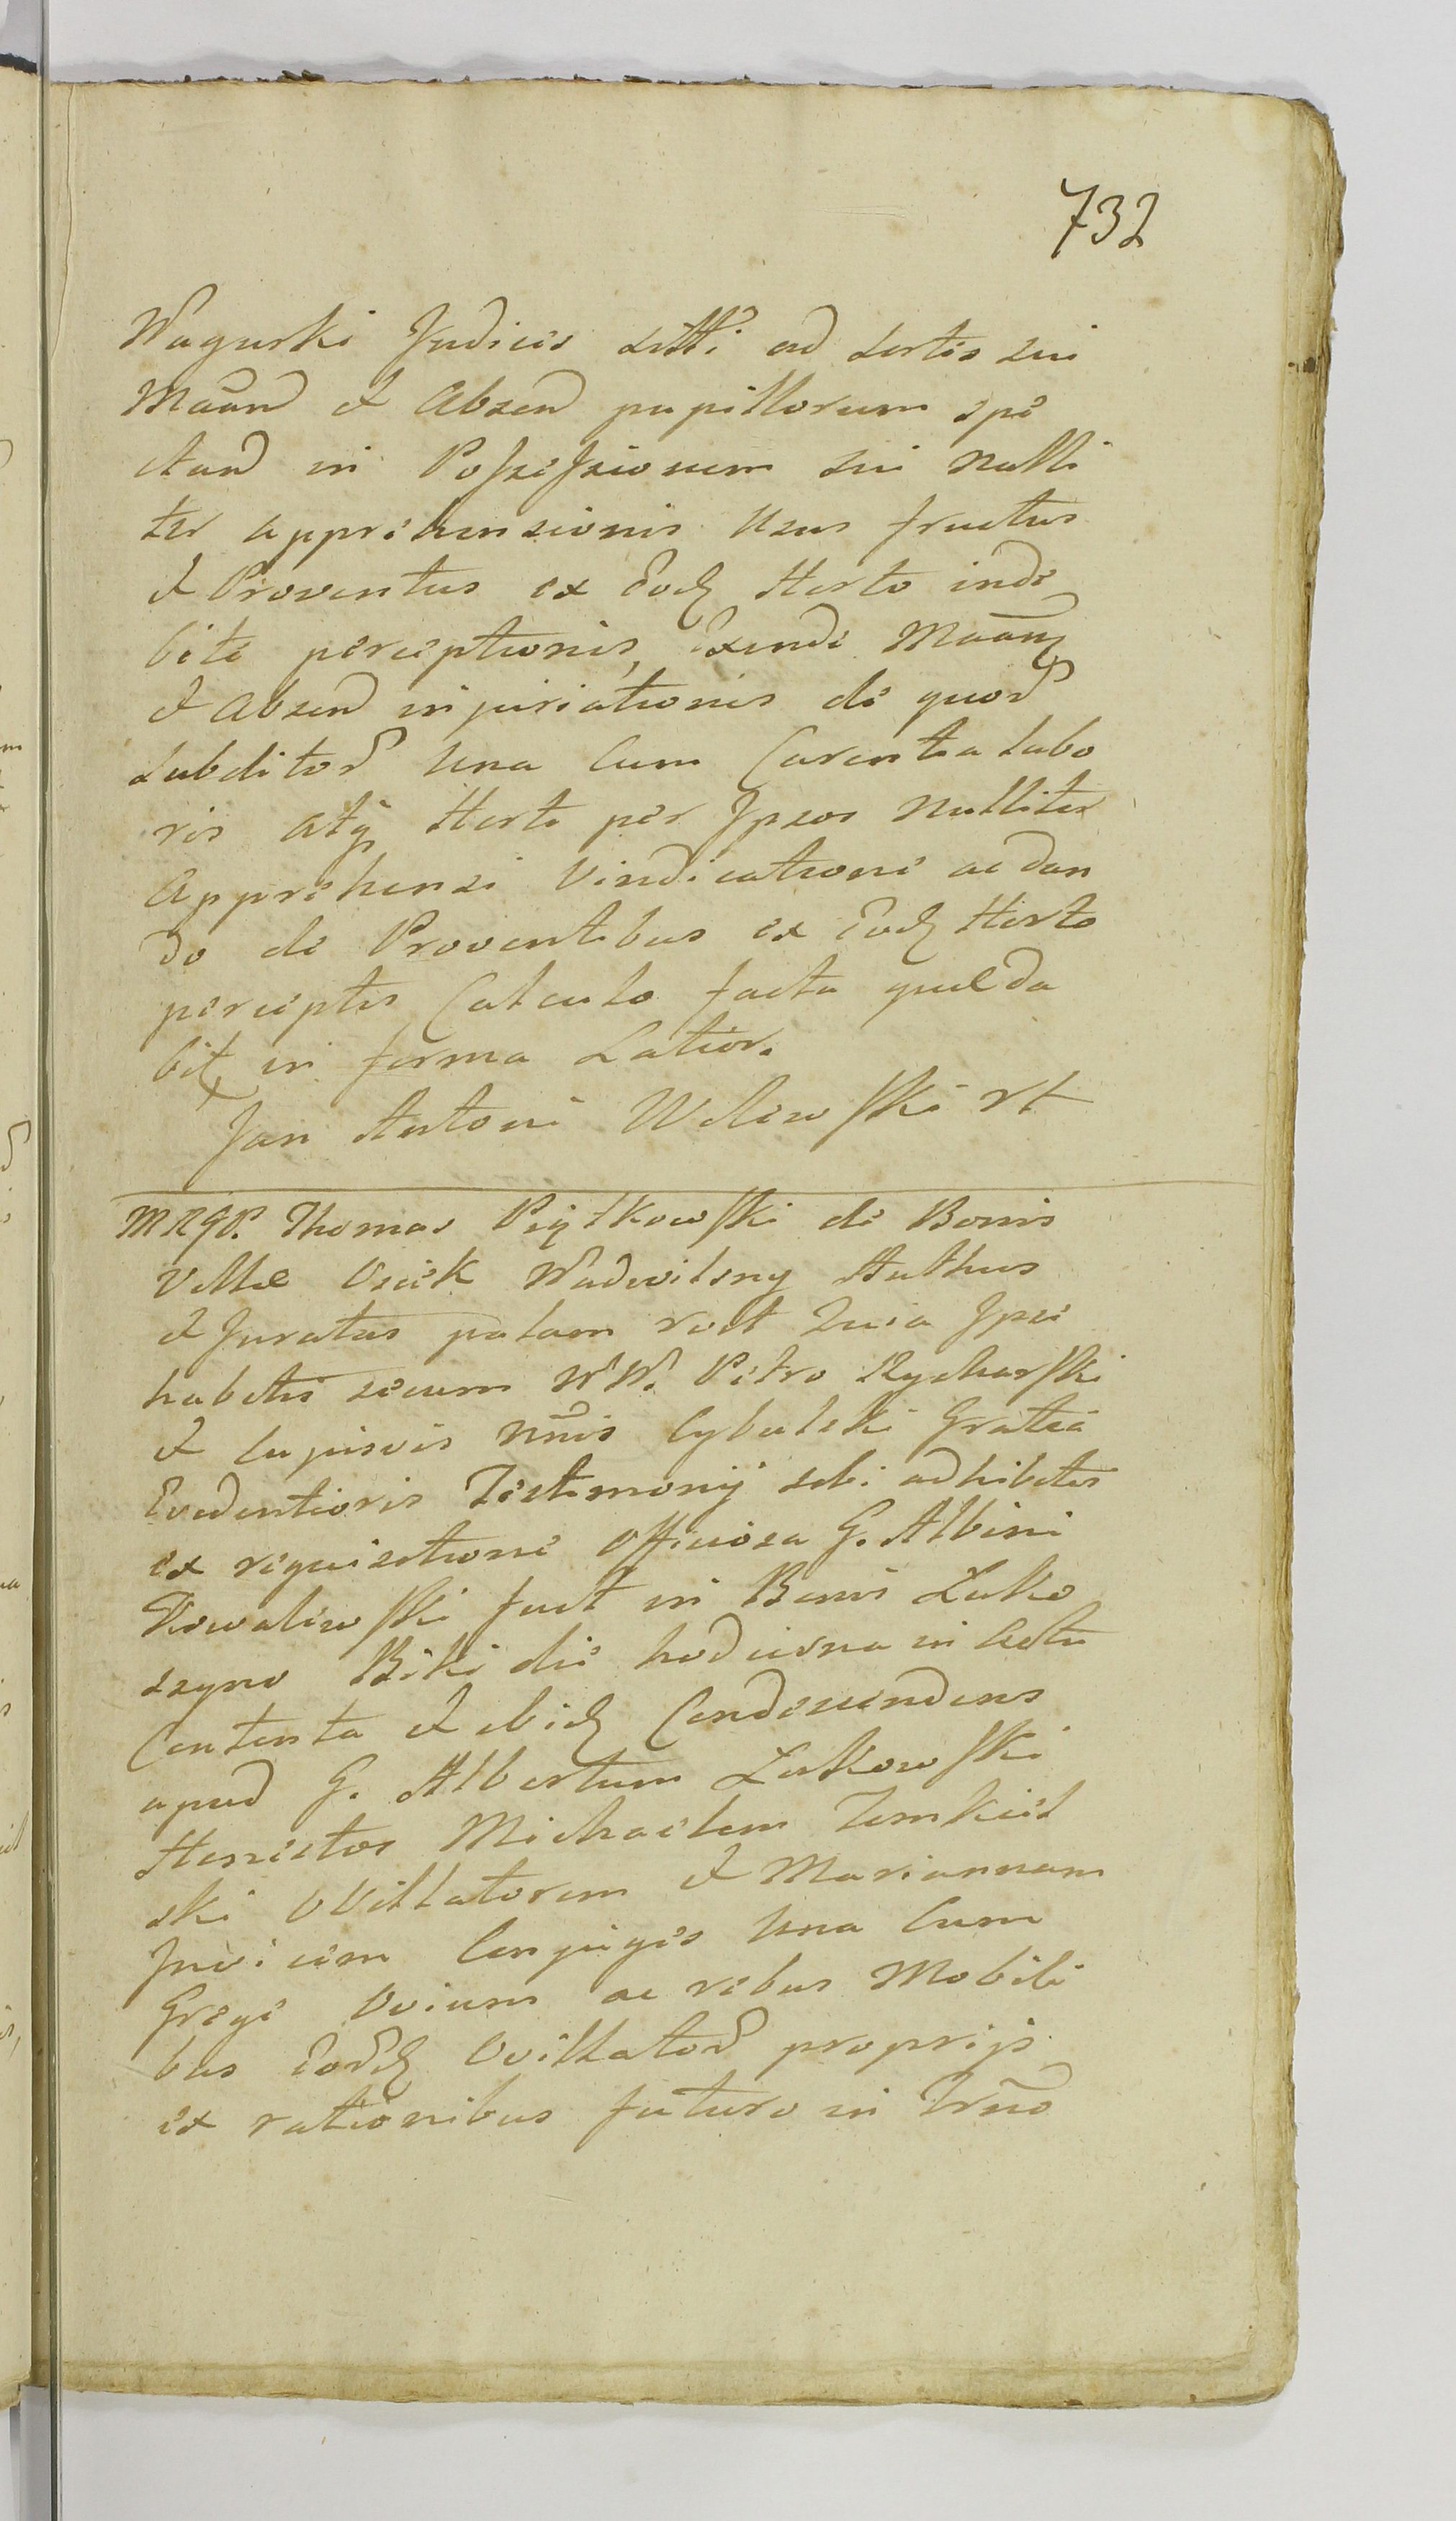 732
Wagurski Judicis Littī ad sortis sui
Maan̄d et Absend pupillorum spe
ctand in Possessionem sui nulli
ter apprehensionis Usus fructus
et Proventus ex Eodq Horto inde
bite perceptionis, Exinde Maanq
et Absend injuriationis de quord
Subditord una Cum Carentia labo
ris atq Horti per Ipsos nulliter
Apprehensi Vindicatione ac dan
do de Proventibus ex Eodq Horto
perceptis Calculo facta quæ da
bit in forma Latior.
Jan Antoni Wolewski
MRGP. Thomas Piątkowski de Bonis
Villæ Osiek Authus
et Juratus palam
habitis secum WW. Petro Rycharski
et Cybulski Gratia
Evidentioris Testimonij sibi adhibitis
ex requisitione Officiosa G. Albini
Kowalewski fuit in Bonis Łuko
szyno Biki die hodierna in Actu
Contenta et ibidq Condescendens
apud G. Albertum Łukowski
Honestos Michaelem
ski Ovillatorem et Mariannam
Invicem Conjuges una Cum
Grege Ovium ac rebus Mobili
bus Eordq Ovillatord proprijs
ex rationibus futuro in Trm̄o